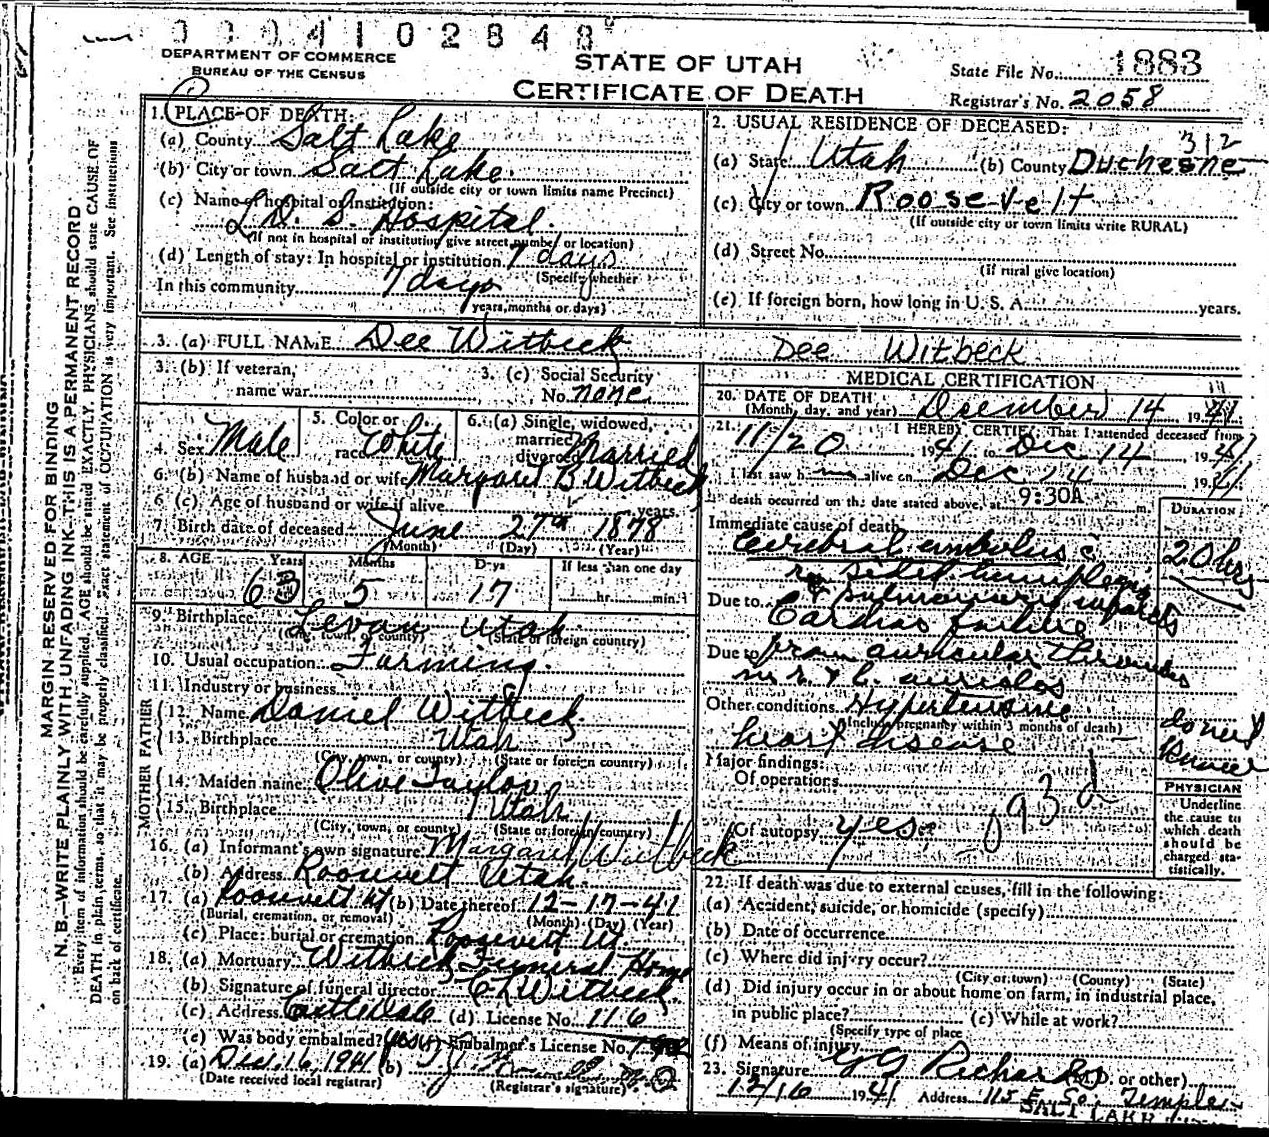 0004102848
DEPARTMENT OF COMMERCE
BUREAU OF THE CENSUS
STATE OF UTAH
CERTIFICATE OF DEATH
State File No. 1883
Registrar's No. 2058
MARGIN RESERVED FOR BINDING
N. B.—WRITE PLAINLY WITH UNFADING INK—THIS IS A PERMANENT RECORD
Every item of information should be carefully supplied. AGE should be stated EXACTLY. PHYSICIANS should state CAUSE OF
DEATH in plain terms, so that it may be properly classified. Exact statement of OCCUPATION is very important. See instructions
on back of certificate.
1. PLACE OF DEATH:
(a) County Salt Lake
(b) City or town Salt Lake
(If outside city or town limits name Precinct)
(c) Name of hospital or institution:
L. D. S. Hospital
(If not in hospital or institution give street number or location)
(d) Length of stay: In hospital or institution 7 days
(Specify whether
In this community 7 days
years, months or days)
2. USUAL RESIDENCE OF DECEASED:
312
(a) State Utah (b) County Duchesne
(c) City or town Roosevelt
(If outside city or town limits write RURAL)
(d) Street No.
(If rural give location)
(e) If foreign born, how long in U. S. A. years.
3. (a) FULL NAME Dee Witbeck Dee Witbeck
3. (b) If veteran,
name war
3. (c) Social Security
No. none
4. Sex Male
5. Color or
race White
6. (a) Single, widowed,
married,
divorced Married
6. (b) Name of husband or wife Margaret B. Witbeck
6. (c) Age of husband or wife if alive years
7. Birth date of deceased June 27th 1878
(Month) (Day) (Year)
8. AGE Years Months Days If less than one day
63 5 17 hr. min.
9. Birthplace Levan Utah
(City, town, or county) (State or foreign country)
10. Usual occupation Farming.
11. Industry or business
FATHER
12. Name Daniel Witbeck
13. Birthplace Utah
(City, town, or county) (State or foreign country)
MOTHER
14. Maiden name Olive Taylor
15. Birthplace Utah
(City, town, or county) (State or foreign country)
16. (a) Informant's own signature Margaret Witbeck
(b) Address Roosevelt Utah.
17. (a) Roosevelt Ut (b) Date thereof 12-17-41
(Burial, cremation, or removal) (Month) (Day) (Year)
(c) Place: burial or cremation Roosevelt Ut.
18. (a) Mortuary Witbeck Funeral Home
(b) Signature of funeral director C L Witbeck
(c) Address Castle Dale (d) License No. 116
(e) Was body embalmed? Embalmer's License No.
19. (a) Dec. 16, 1941 (b)
(Date received local registrar) (Registrar's signature)
MEDICAL CERTIFICATION
20. DATE OF DEATH
(Month, day, and year) December 14 1941
21. I HEREBY CERTIFY, That I attended deceased from
11/20 1941 to Dec 14 1941
I last saw him alive on Dec 14 1941
death occurred on the date stated above, at 9:30A m.
DURATION
Immediate cause of death
Cerebral embolus c̄
rt sided hemiplegia
20 hrs
Due to & pulmonary infarcts
Cardiac failure
Due to from auricular thrombus
in r. & l. auricles
Other conditions Hypertensive
(Include pregnancy within 3 months of death)
heart disease
Major findings:
Of operations
Of autopsy yes 93d
PHYSICIAN
Underline
the cause to
which death
should be
charged sta-
tistically.
22. If death was due to external causes, fill in the following:
(a) Accident, suicide, or homicide (specify)
(b) Date of occurrence
(c) Where did injury occur?
(City or town) (County) (State)
(d) Did injury occur in or about home on farm, in industrial place,
in public place? (e) While at work?
(Specify type of place
(f) Means of injury
23. Signature G G Richards (M.D. or other)
12/16 1941 Address 115 E. So. Temple
SALT LAKE